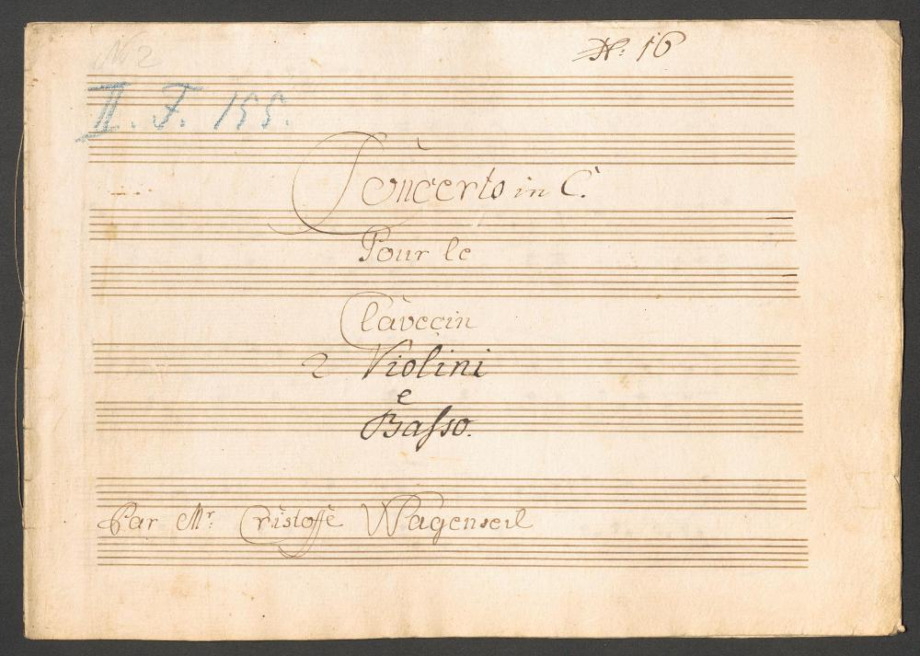 No 2
N: 16
II. F. 155.
Concerto in C.
Pour le
Clavecin
2 Violini
e
Basso.
Par Mr: Cristoffè Wagenseil